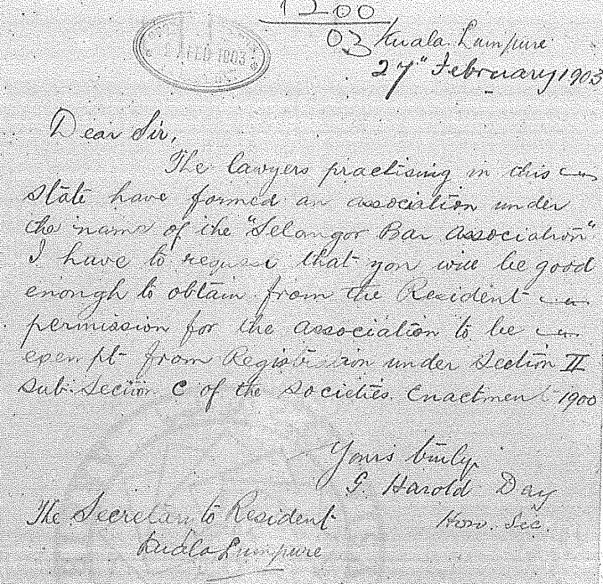 1200
03
Kuala Lumpure
27" February 1903
FEB 1903
Dear Sir,
The lawyers practising in this
state have formed an association under
the name of the "Selangor Bar Association"
I have to request that you will be good
enough to obtain from the Resident
permission for the association to be
exempt from Registration under Section II
Sub: Section C of the Societies Enactment 1900
Yours truly
G. Harold Day
Hon. Sec.
The Secretary to Resident
Kuala Lumpure